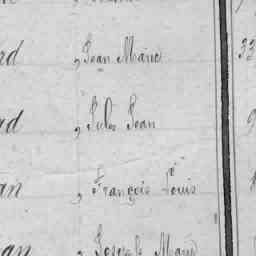 rd , Jean Marie 33
rd , Jules Jean 9
an , François Louis
an , Joseph Marie